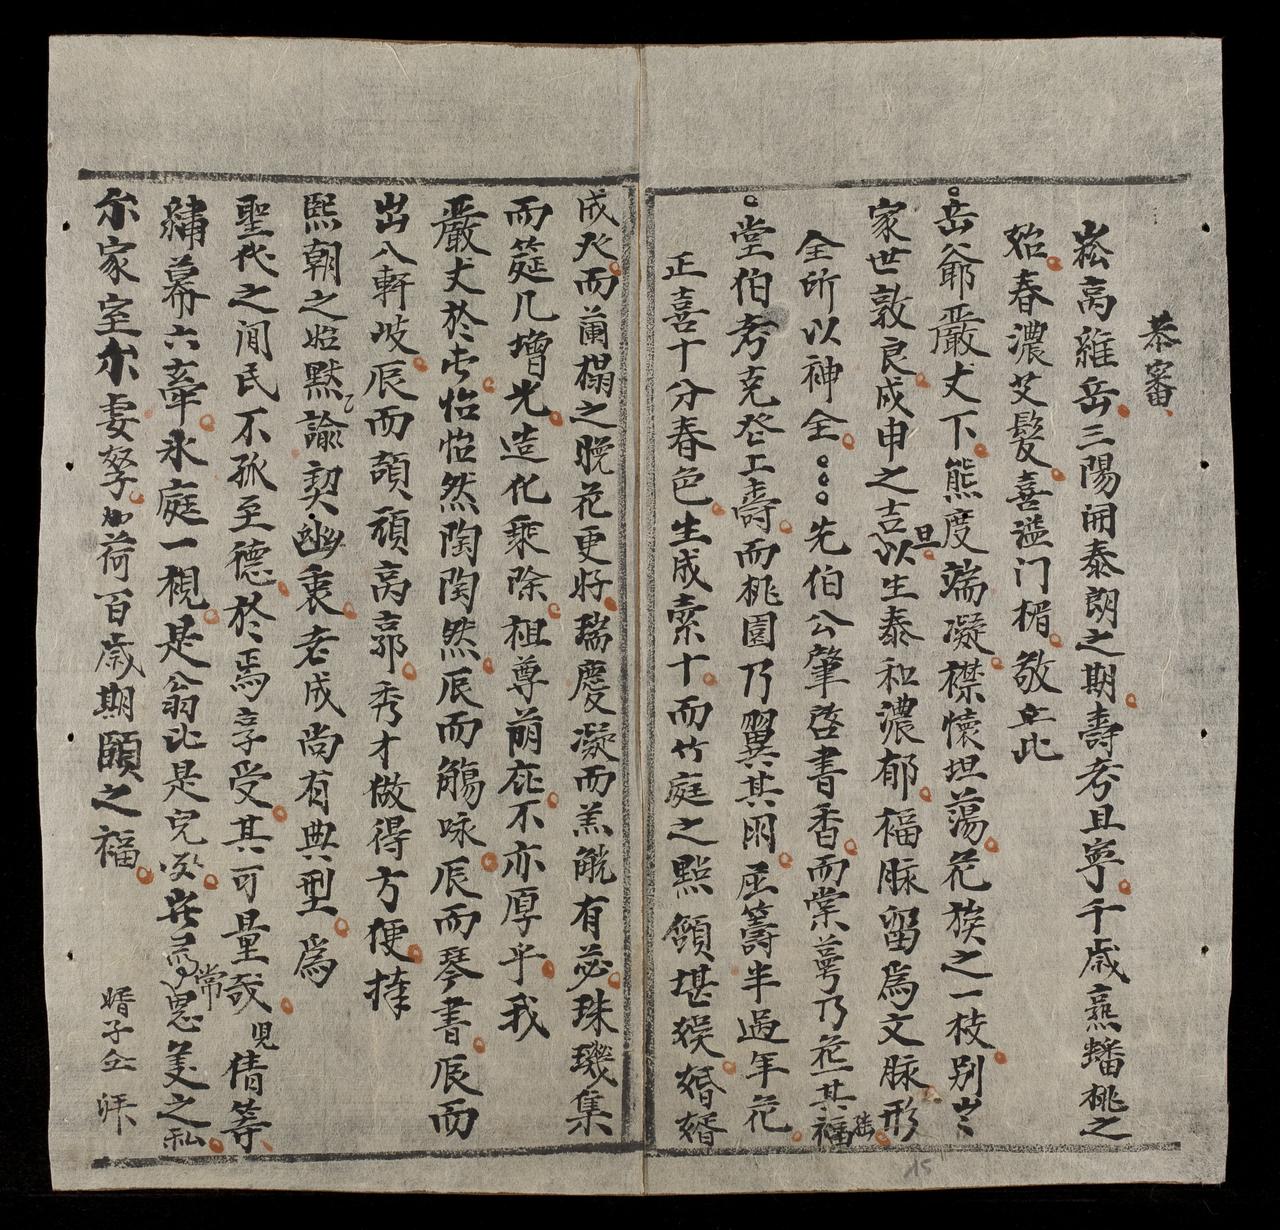 恭審
崧高維岳三陽開泰朗之期壽考且寧千歲 蟠桃之
春濃艾髮喜溢门楣敬 此
岳爺嚴丈下熊度端凝襟懷坦蕩花族之一枝别出
家世敦良成申之吉旦以生泰和濃郁福脉留爲文脉形
全所以神全先伯公肇啓書香而棠萼乃 其福
堂伯考克登上壽而桃園乃翼其 籌半過年花
正喜十分春色生成 十而竹庭之 顔堪娱婚婿
成 而蘭榻之晚花更好瑞慶凝而羔觥有苾珠璣集
而筵几增光造化乘除祖尊萠庇不亦厚乎我
嚴丈於 怡怡然陶陶然辰而觴咏辰而琴書辰而
出八軒岐辰而頡頏高郭秀才做得方便 
熙朝之 默諭契幽衷老成尚有典型爲
聖代之间民不孤至德於焉享受其可量哉 倩等
繡幕六牽氷庭一視是翁 是兒 常思 之私
尔家室尔妻孥 荷百歲期頤之福
婿子仝拜
15